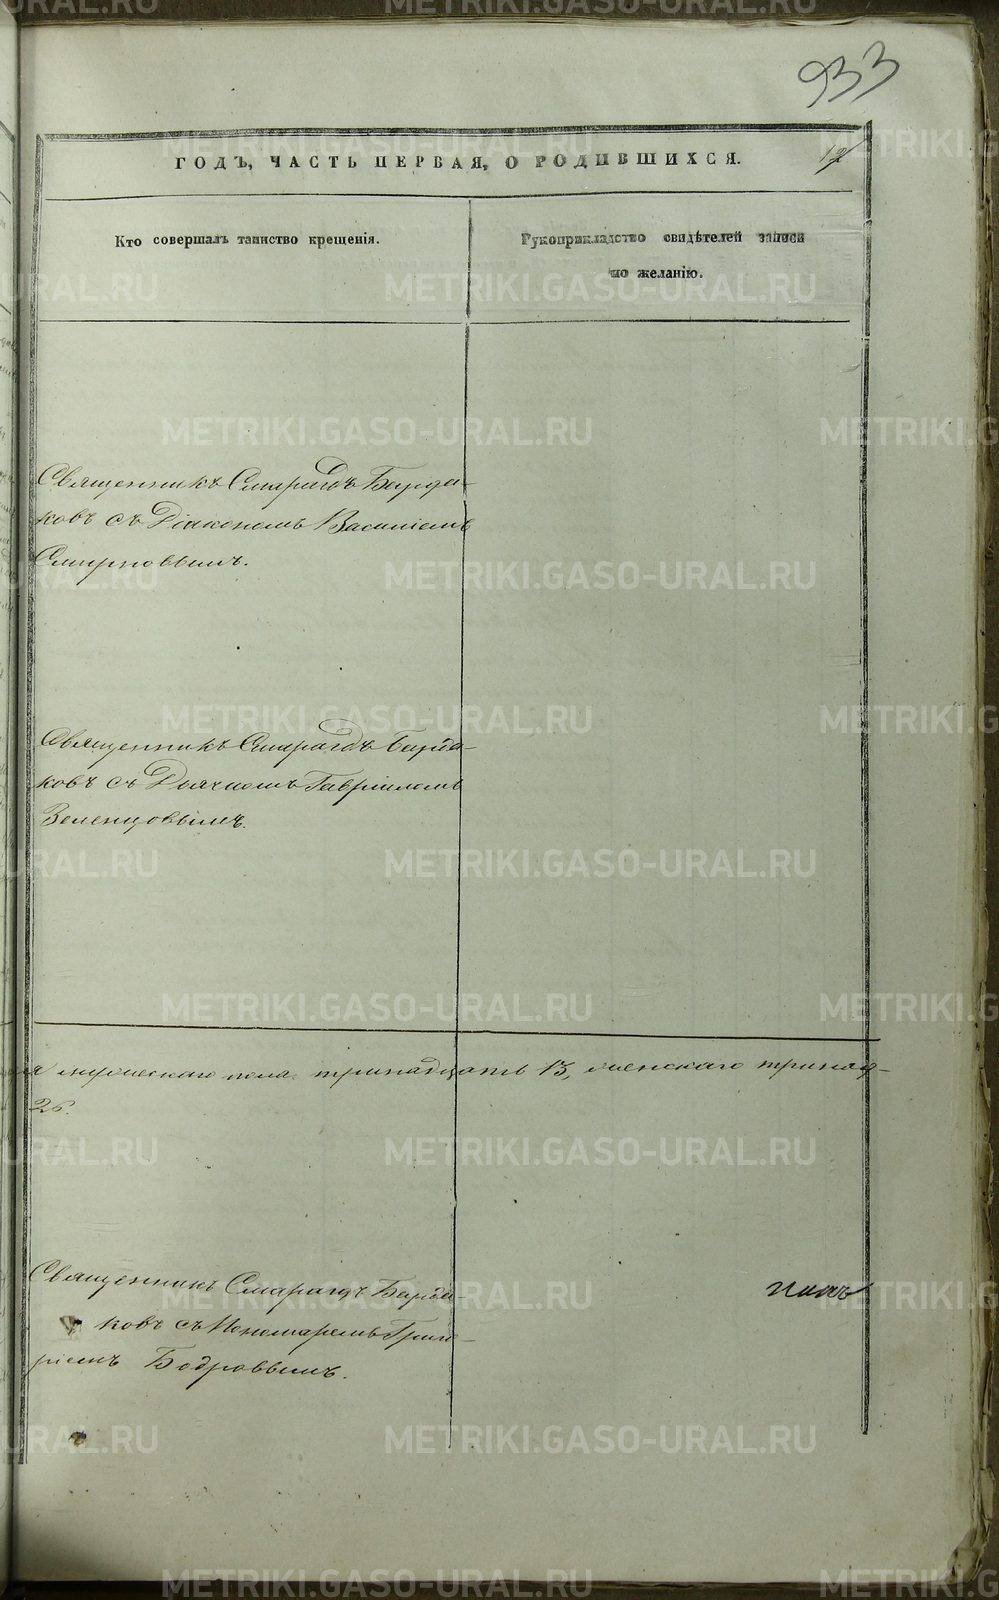 933
ГОДЪ, ЧАСТЬ ПЕРВАЯ, О РОДИВШИХСЯ.
Кто совершалъ таинство крещенія.
Рукоприкладство свидѣтелей записи
по желанію.
Священникъ Смарагдъ Бирда-
ковъ съ Діакономъ Василіемъ
Смирновымъ.
Священникъ Смарагдъ
ковъ съ Дьячкомъ Гавріиломъ
Зеленцовымъ.
мужескаго пола тринадцать 13, женскаго тринад-
26.
Священникъ Смарагдъ
ковъ съ Пономаремъ Григо-
ріемъ Бодровымъ.
METRIKI.GASO-URAL.RU